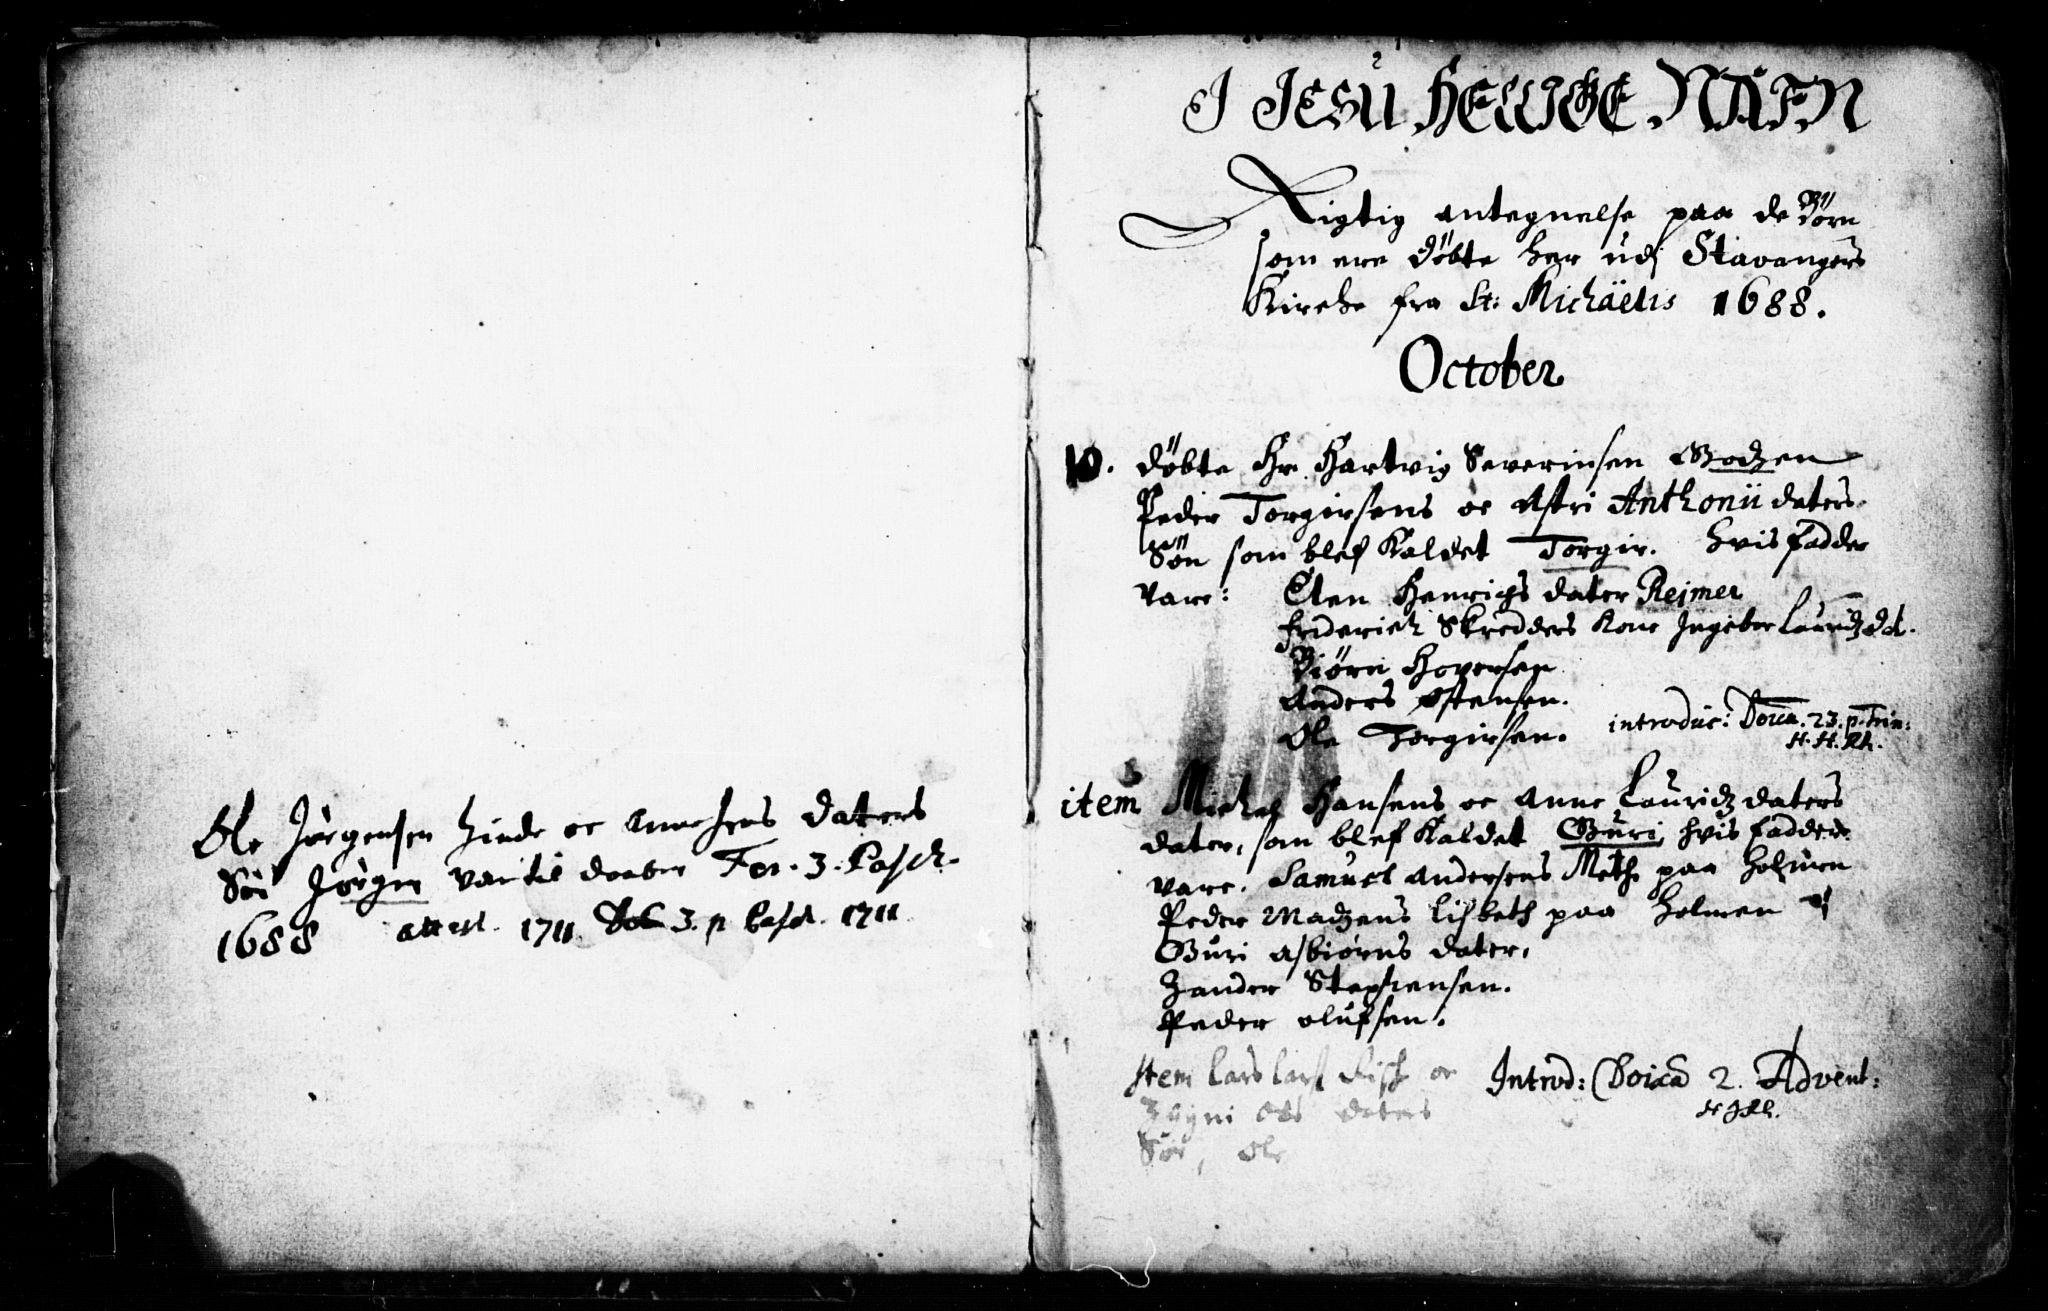 Ole Jørgensen Hinde oc Anne Jens daters
Søn Jørgen var til daaben Fer. 3. Pasch.
1688 attest. 1711. Dom 3. p Pasch. 1711
I JESU HELLIGE NAFN
Rigtig antegnelse paa de Børn
som ere døbte her udj Stavangers
Kirche fra St: Michäelis 1688.
October
10. døbte Hr. Hartvig Severinsen Godzen
Peder Torgirsens oc Astri Anthonii daters
Søn som blef Kaldet Torgir. hvis fadder
vare: Elen Henrichs dater Reimer
Friderich Skredders Kone Ingebor Lauridz dt.
Biørn Hoversen
Anders Østensen.
Ole Torgirsen. introduc: Domca. 23. p. Trin:
H. H. Rh.
item Michel Hansens oc Anne Lauridz daters
dater, som blef Kaldet Guri, hvis fadder
vare. Samuel Andersens Methe paa Holmen
Peder Madzens Lisbeth paa Holmen
Guri Asbiørns dater,
Zander Stephensen.
Peder Olufsen.
Item Lars Lars Fisk oc Introd: Doica 2. Advent:
dater
Søn, Ole